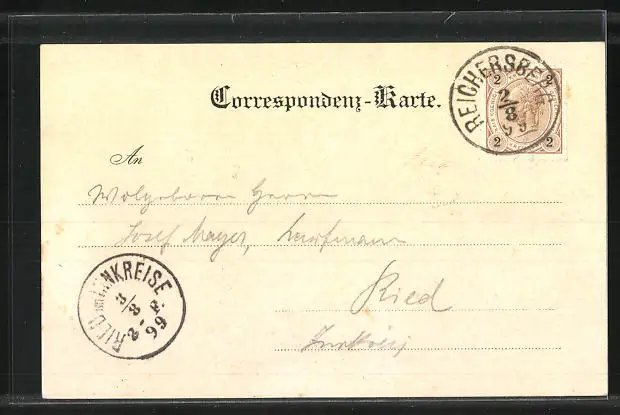 Correspondenz-Karte.
REICHERSBERG
2/8
99
2 2
2 2
An
Wolgeboren Herrn
Josef Mayer, Kaufmann
Ried
Innkreis
RIED IM INNKREISE
3/8
2-F
99